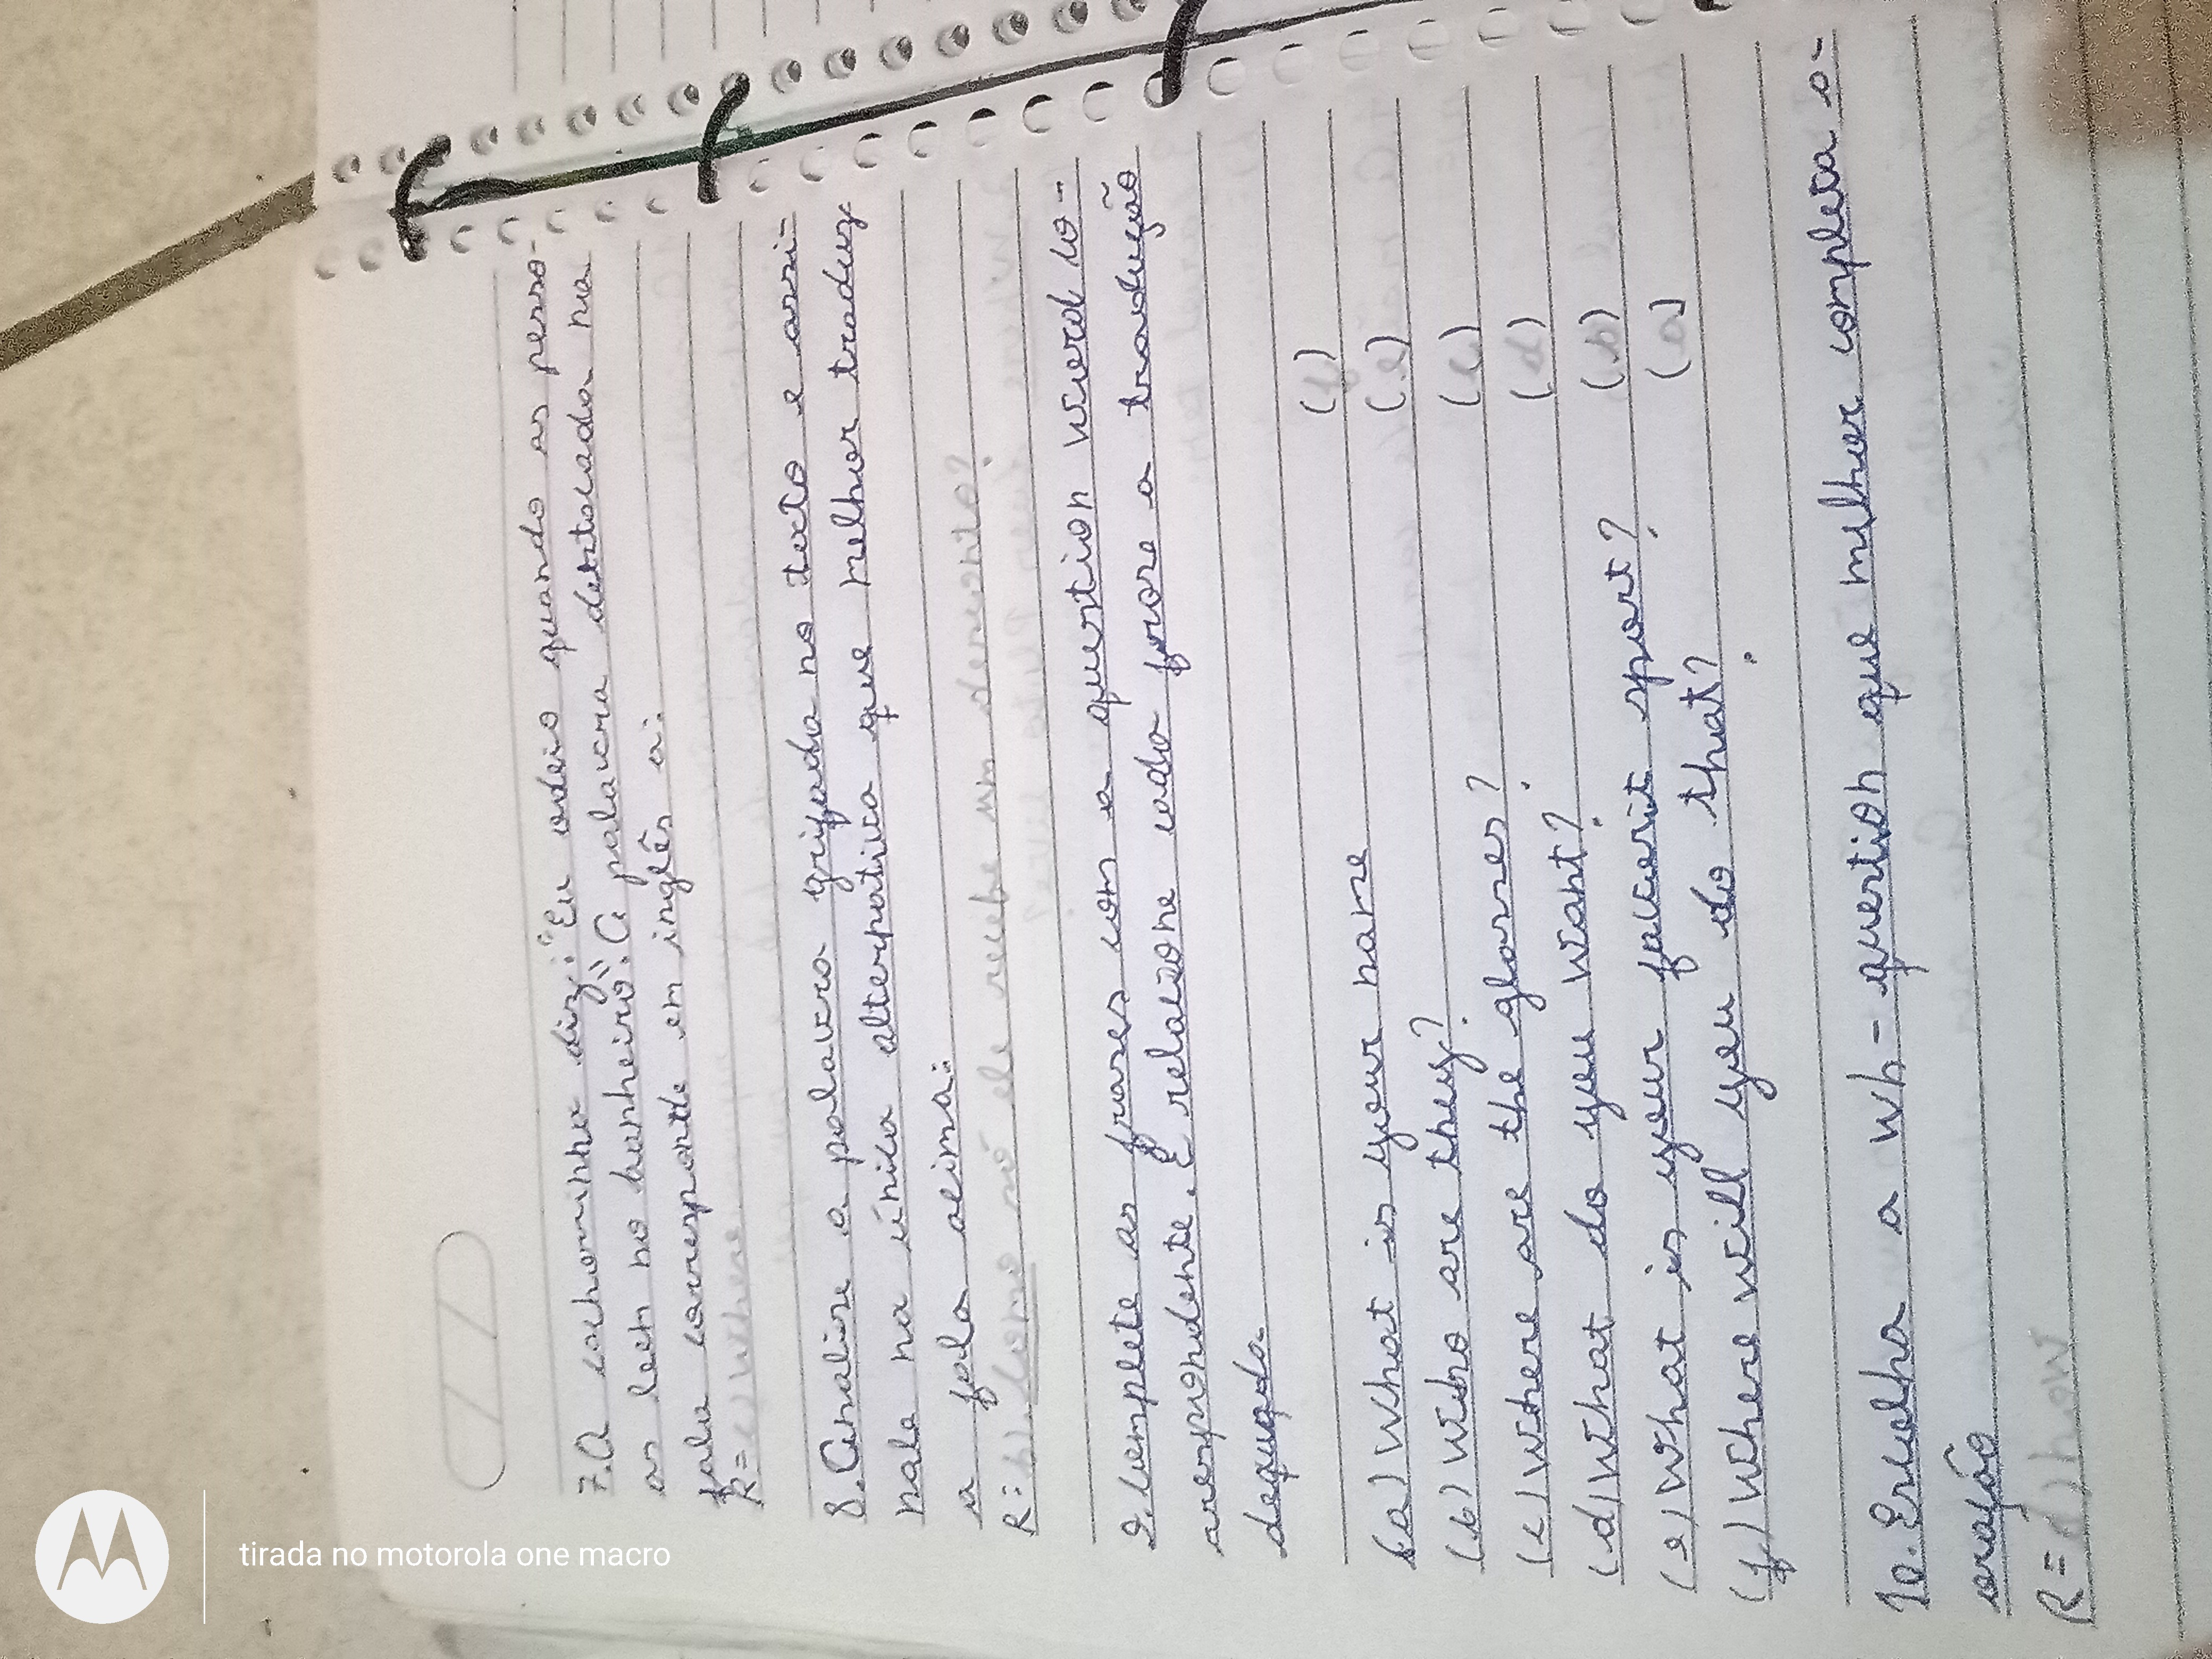 7. A cachorrinha diz: "Eu odeio quando as pesso-
as leem no banheiro". A palavra destacada na
fala corresponde em inglês a:
R= c) Where
8. Analise a palavra grifada no texto e assi-
nale na única alternativa que melhor traduz
a fala acima:
R= b) Como nó ele recebe um desconto?
9. Complete as frases com a question word co-
rrespondente. E relacione cada frase a tradução
dequada.
(a) What is your name (f)
(b) Who are they? (e)
(c) Where are the glasses? (c)
(d) What do you want? (d)
(e) What is your favorit sport? (b)
(f) Where will you do that? (a)
10. Escolha a wh-question que melhor completa o-
oração
R= d) how
tirada no motorola one macro